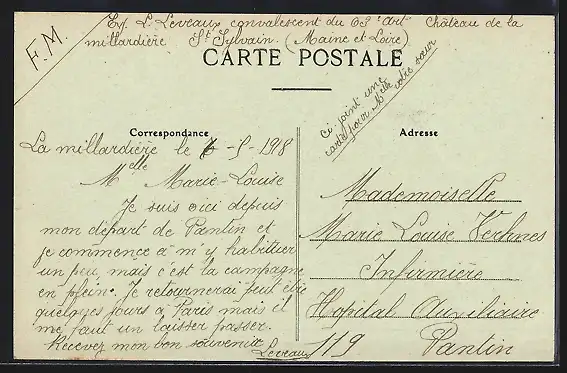 Exp. L. Leveaux convalescent du 63e Arti Château de la
millardière St Sylvain. (Maine et Loire)
F.M.
CARTE POSTALE
ci joint une
carte pour Melle votre sœur
Correspondance
Adresse
La millardière le 6-5-1918
Melle Marie-Louise
Je suis ici depuis
mon départ de Pantin et
je commence a m'y habituer
un peu mais c'est la campagne
en plein. Je retournerai peut etre
quelques jours a Paris mais il
me faut un laisser passer.
Recevez mon bon souvenir
Leveaux
Mademoiselle
Marie Louise
Infirmière
Hopital Auxiliaire
119 Pantin